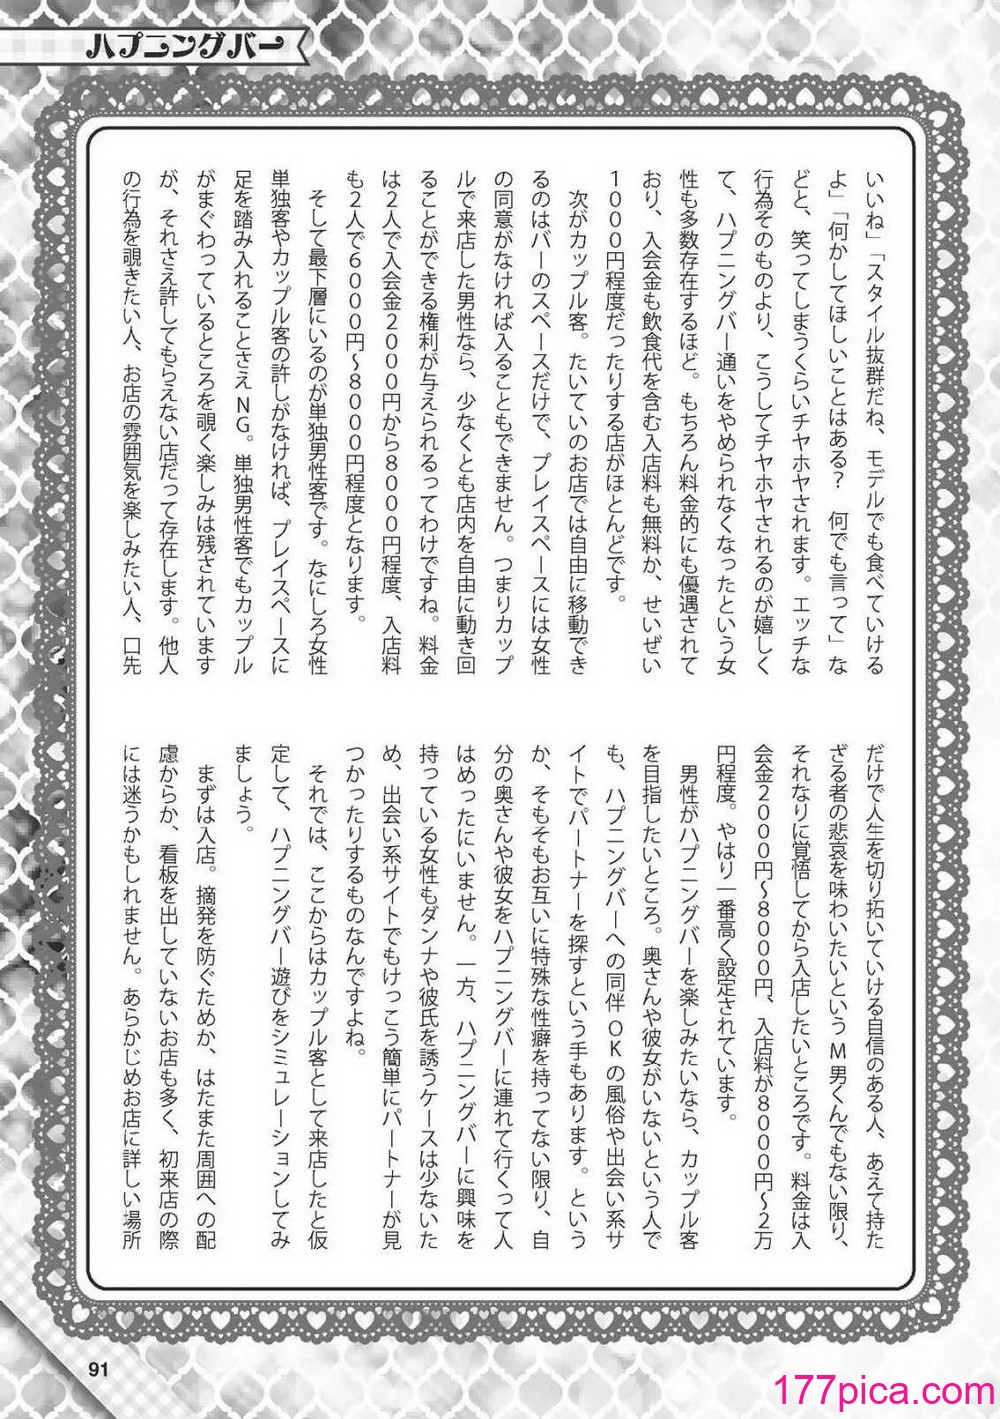 ハプニングバー
いいね」「スタイル抜群だね、モデルでも食べていける
よ」「何かしてほしいことはある？　何でも言って」な
どと、笑ってしまうくらいチヤホヤされます。エッチな
行為そのものより、こうしてチヤホヤされるのが嬉しく
て、ハプニングバー通いをやめられなくなったという女
性も多数存在するほど。もちろん料金的にも優遇されて
おり、入会金も飲食代を含む入店料も無料か、せいぜい
1000円程度だったりする店がほとんどです。
　次がカップル客。たいていのお店では自由に移動でき
るのはバーのスペースだけで、プレイスペースには女性
の同意がなければ入ることもできません。つまりカップ
ルで来店した男性なら、少なくとも店内を自由に動き回
ることができる権利が与えられるってわけですね。料金
は2人で入会金2000円から8000円程度、入店料
も2人で6000円〜8000円程度となります。
　そして最下層にいるのが単独男性客です。なにしろ女性
単独客やカップル客の許しがなければ、プレイスペースに
足を踏み入れることさえNG。単独男性客でもカップル
がまぐわっているところを覗く楽しみは残されています
が、それさえ許してもらえない店だって存在します。他人
の行為を覗きたい人、お店の雰囲気を楽しみたい人、口先
だけで人生を切り拓いていける自信のある人、あえて持た
ざる者の悲哀を味わいたいというM男くんでもない限り、
それなりに覚悟してから入店したいところです。料金は入
会金2000円〜8000円、入店料が8000円〜2万
円程度。やはり一番高く設定されています。
　男性がハプニングバーを楽しみたいなら、カップル客
を目指したいところ。奥さんや彼女がいないという人で
も、ハプニングバーへの同伴OKの風俗や出会い系サ
イトでパートナーを探すという手もあります。という
か、そもそもお互いに特殊な性癖を持ってない限り、自
分の奥さんや彼女をハプニングバーに連れて行くって人
はめったにいません。一方、ハプニングバーに興味を
持っている女性もダンナや彼氏を誘うケースは少ないた
め、出会い系サイトでもけっこう簡単にパートナーが見
つかったりするものなんですよね。
　それでは、ここからはカップル客として来店したと仮
定して、ハプニングバー遊びをシミュレーションしてみ
ましょう。
　まずは入店。摘発を防ぐためか、はたまた周囲への配
慮からか、看板を出していないお店も多く、初来店の際
には迷うかもしれません。あらかじめお店に詳しい場所
91
177pica.com